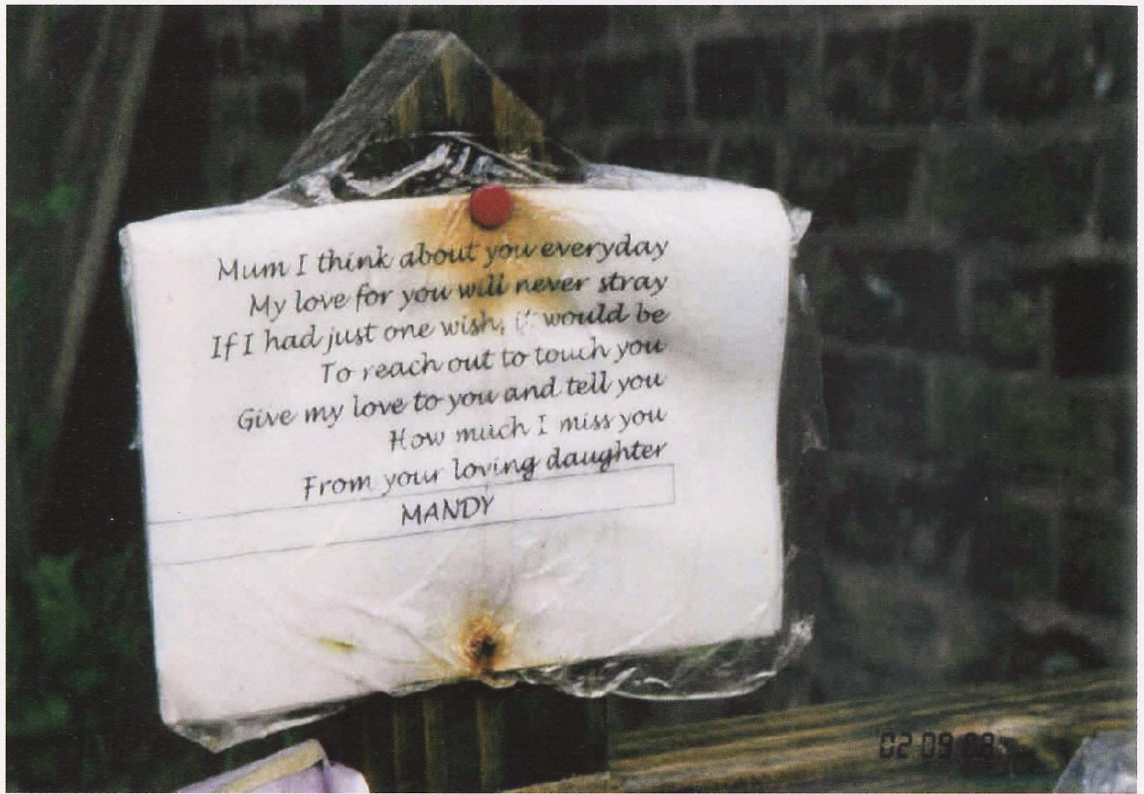 Mum I think about you everyday
My love for you will never stray
If I had just one wish, it would be
To reach out to touch you
Give my love to you and tell you
How much I miss you
From your loving daughter
MANDY
02 09 03